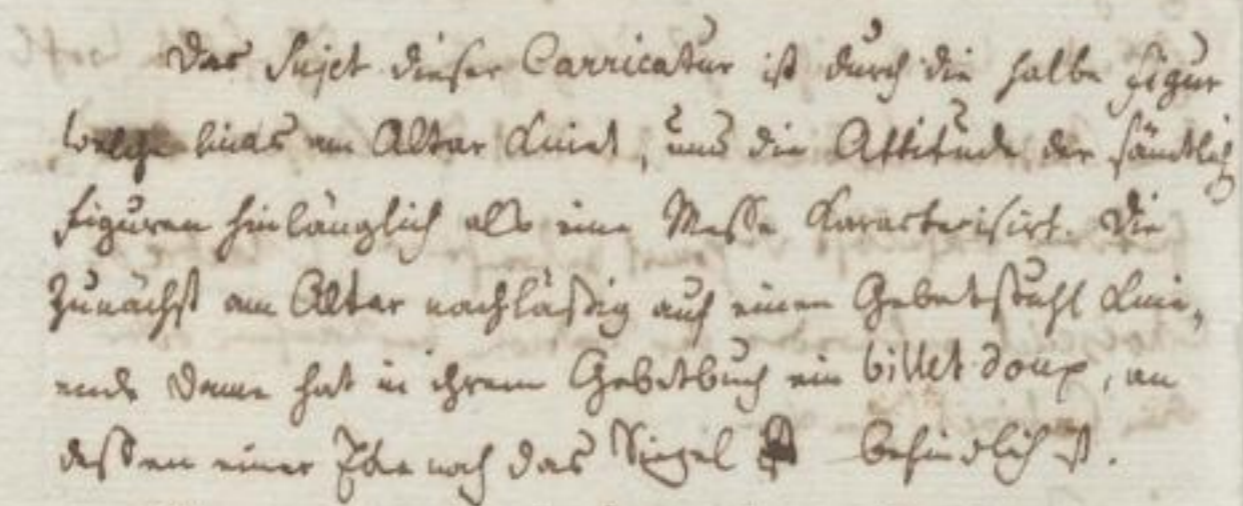 Das Sujet dieser Carricatur ist durch die halbe Figur
welche links am Altar kniet, und die Attitude der sämtlich
Figuren hinlänglich als eine Messe karacterisirt. Die
zunächst am Altar nachläßig auf einem Gebetstuhl knie-
ende Dame hat in ihrem Gebetbuch ein billet doux, an
deßen einer Ecke noch das Siegel befindlich ist.